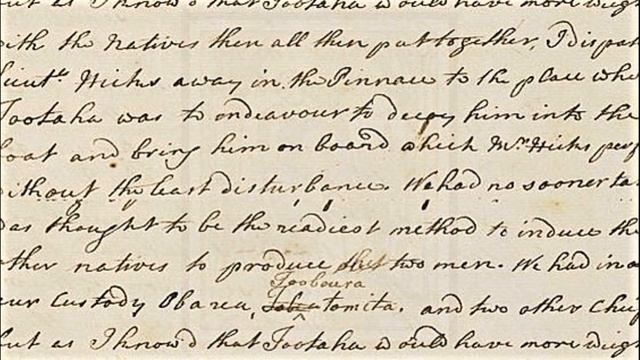 but as I know'd that Tootaha would have more weig
with the Natives then all then put together, I dispat
Lieut.t Hicks away in the Pinnace to the place whe
Tootaha was to endeavour to decoy him into the
boat and bring him on board which Mr. Hicks perf
without the least disturbance. We had no sooner ta
was thought to be the readiest method to induce the
other natives to produce the two men. We had in o
Tooboura
our Custody Obarea, tomita, and two other Chief
but as I know'd that Tootaha would have more weigh